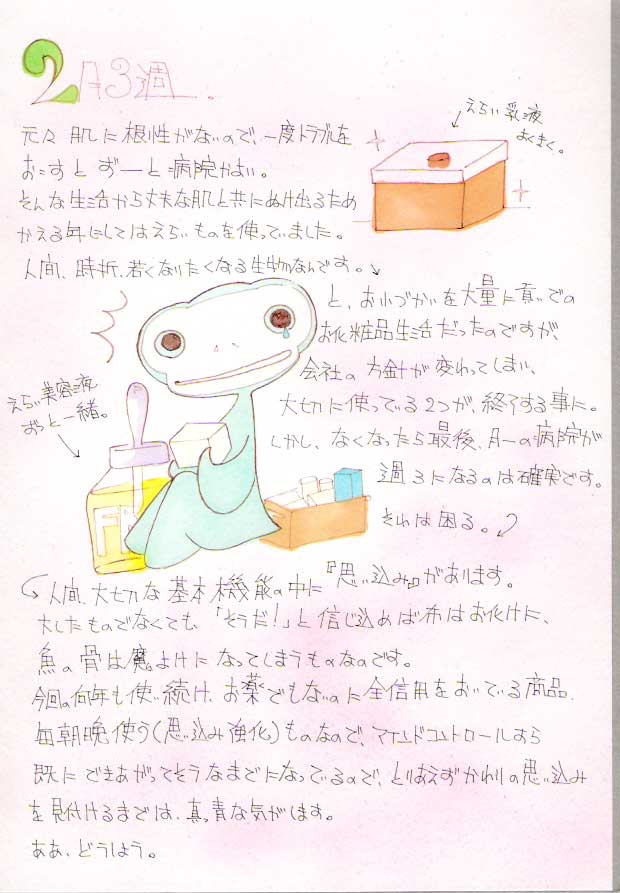 2月3週。
えらい乳液
よくきく。
元々肌に根性がないので、一度トラブルを
おこすとずーと病院がよい。
そんな生活から丈夫な肌と共にぬけ出るため
かえる年にしてはえらいものを使っていました。
人間、時折、若くなりたくなる生物なんです。
と、おこづかいを大量に貢いでの
お化粧品生活だったのですが、
会社の方針が変わってしまい、
大切に使っている2つが、終了する事に。
しかし、なくなったら最後、月一の病院が
週3になるのは確実です。
それは困る。
えらい美容液
ずっと一緒。
人間、大切な基本機能の中に『思い込み』があります。
大したものでなくても、「そうだ!」と信じ込めば布はお化けに、
魚の骨は魔よけになってしまうものなのです。
今回の何年も使い続け、お薬でもないのに全信用をおいている商品、
毎朝晩使う(思い込み強化)ものなので、マインドコントロールすら
既にできあがってそうなまでになっているので、とりあえずかわりの思い込み
を見付けるまでは、真っ青な気がします。
ああ、どうしよう。